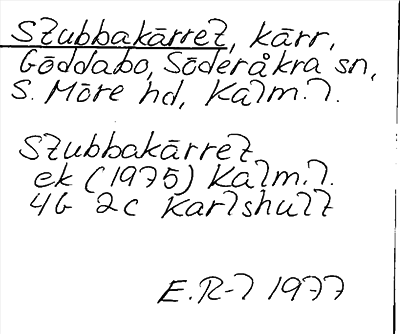 Stubbakärret, kärr,
Göddabo, Söderåkra sn,
S. Möre hd, Kalm. l.
Stubbakärret
ek (1975) Kalm. l.
4G 2c Karlshult
E.R-l 1977